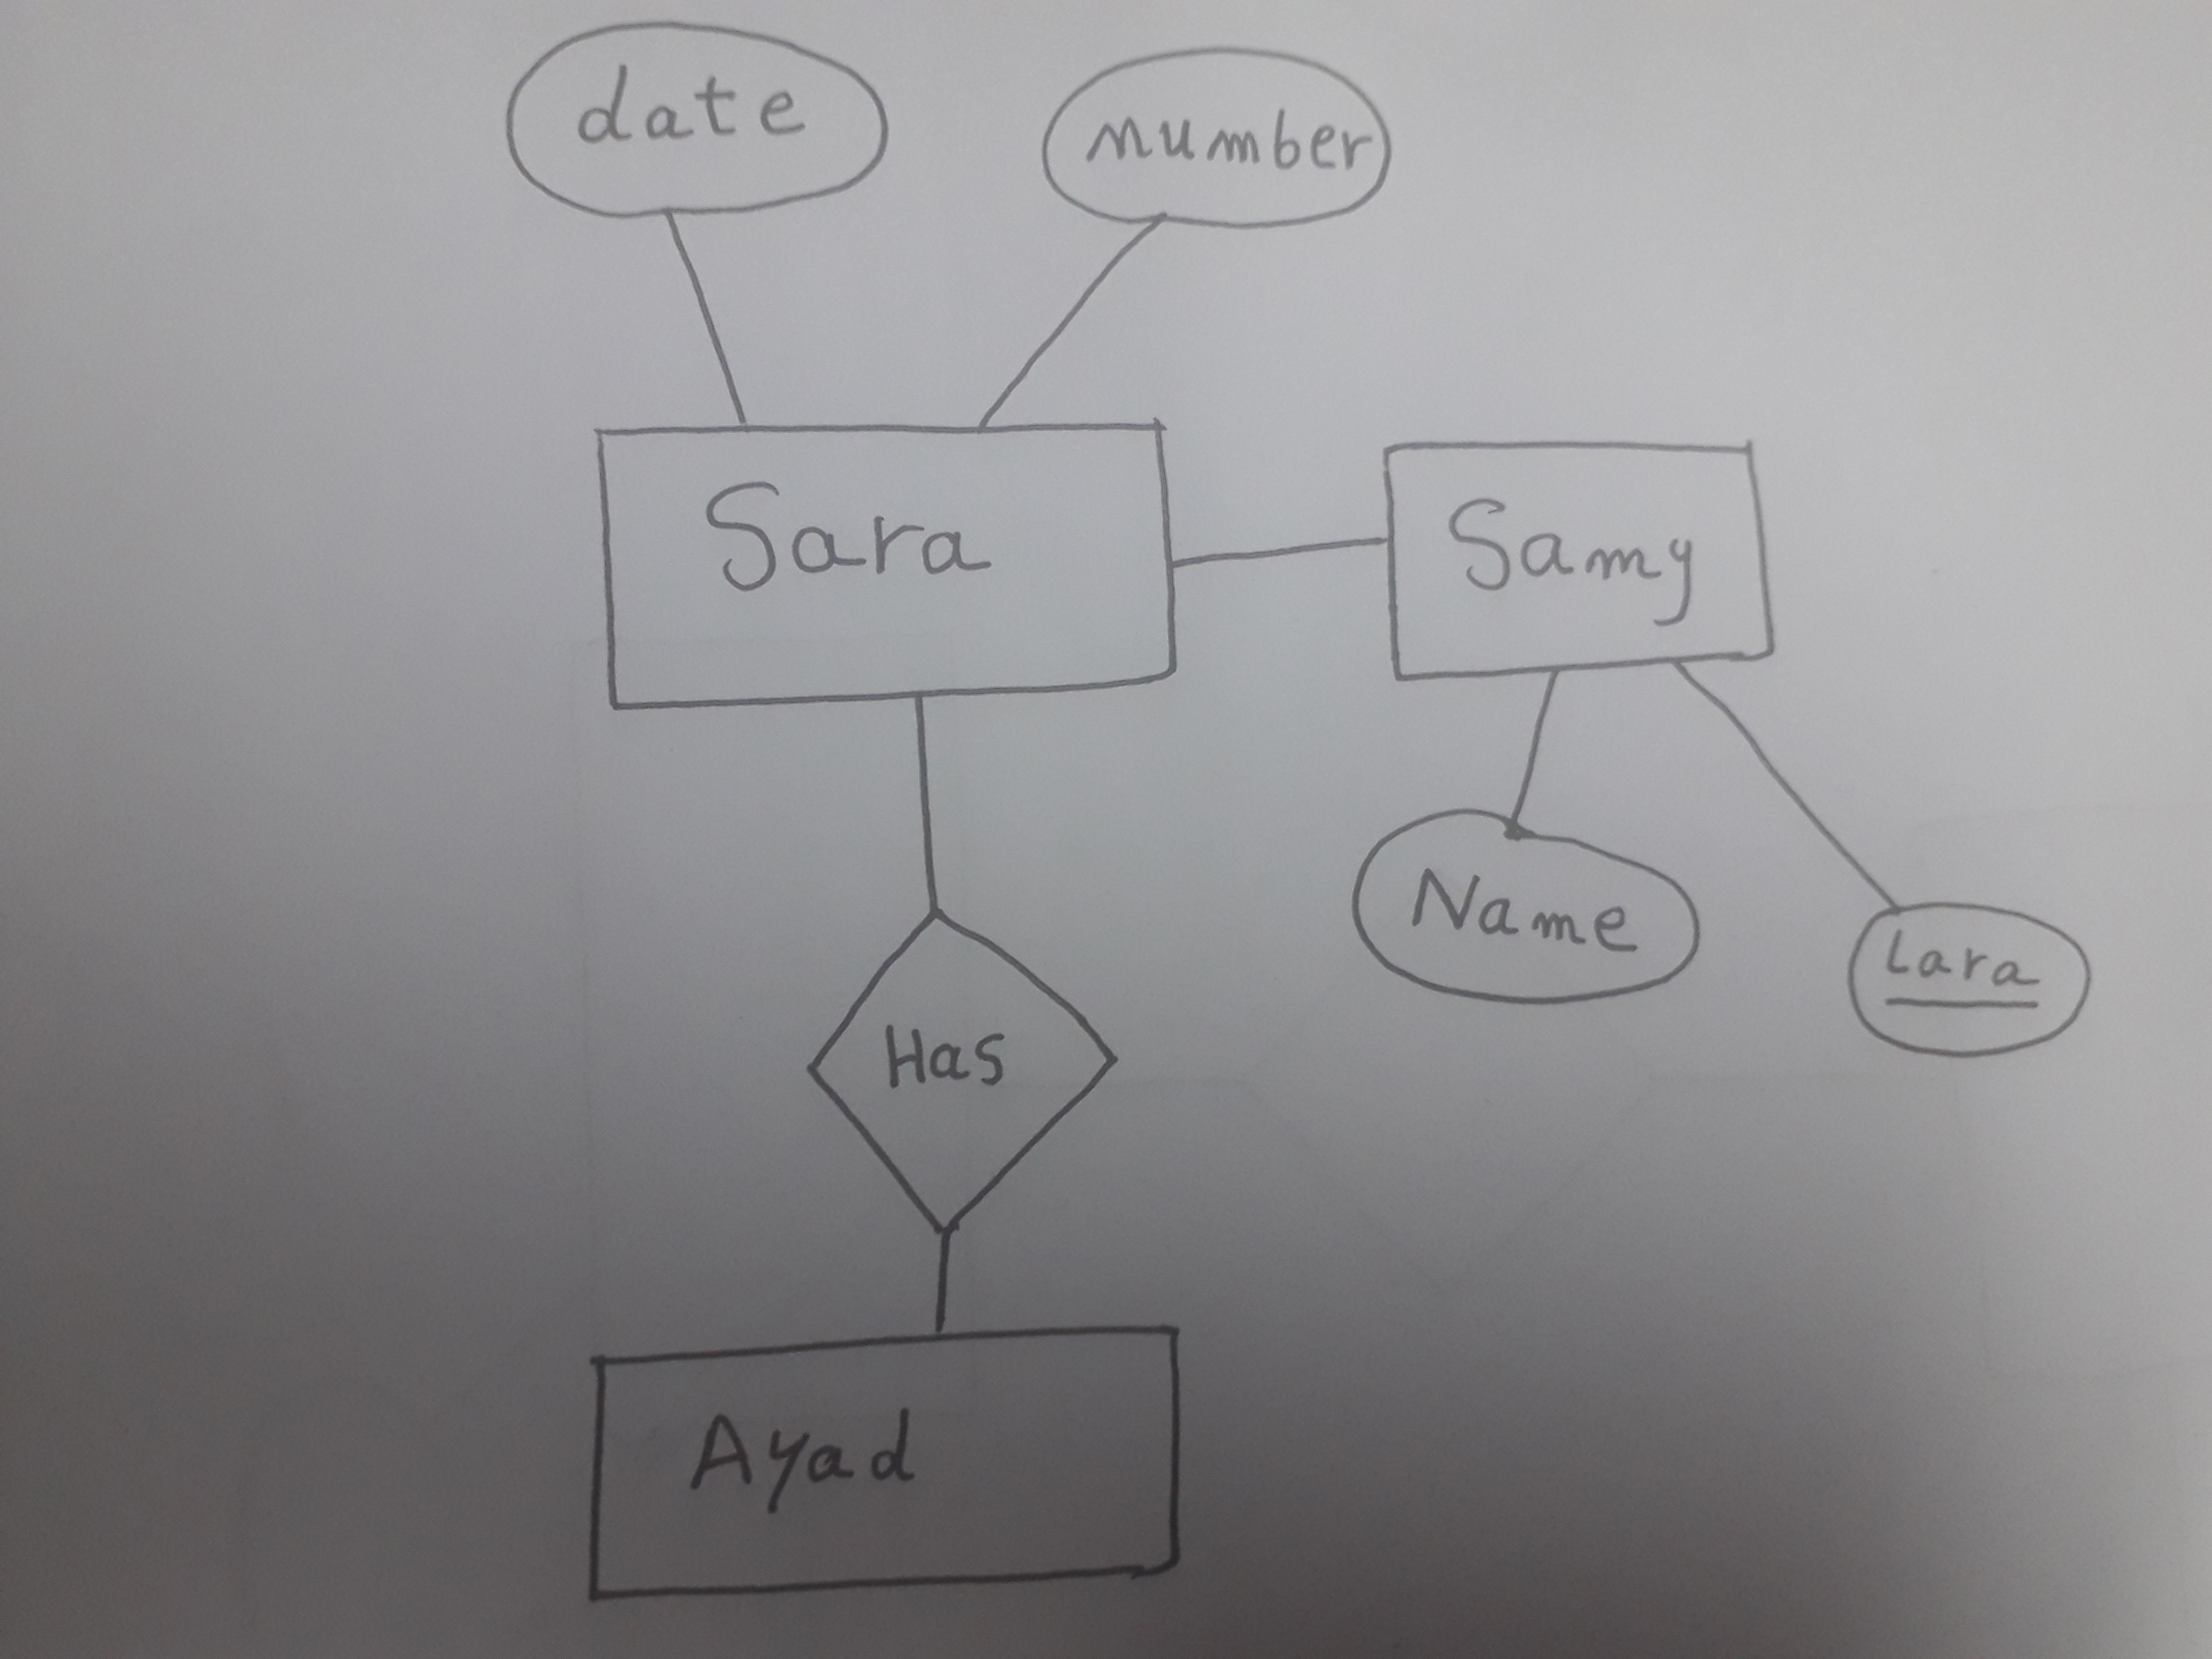 date
number
Sara
Samy
Name
Lara
Has
Ayad